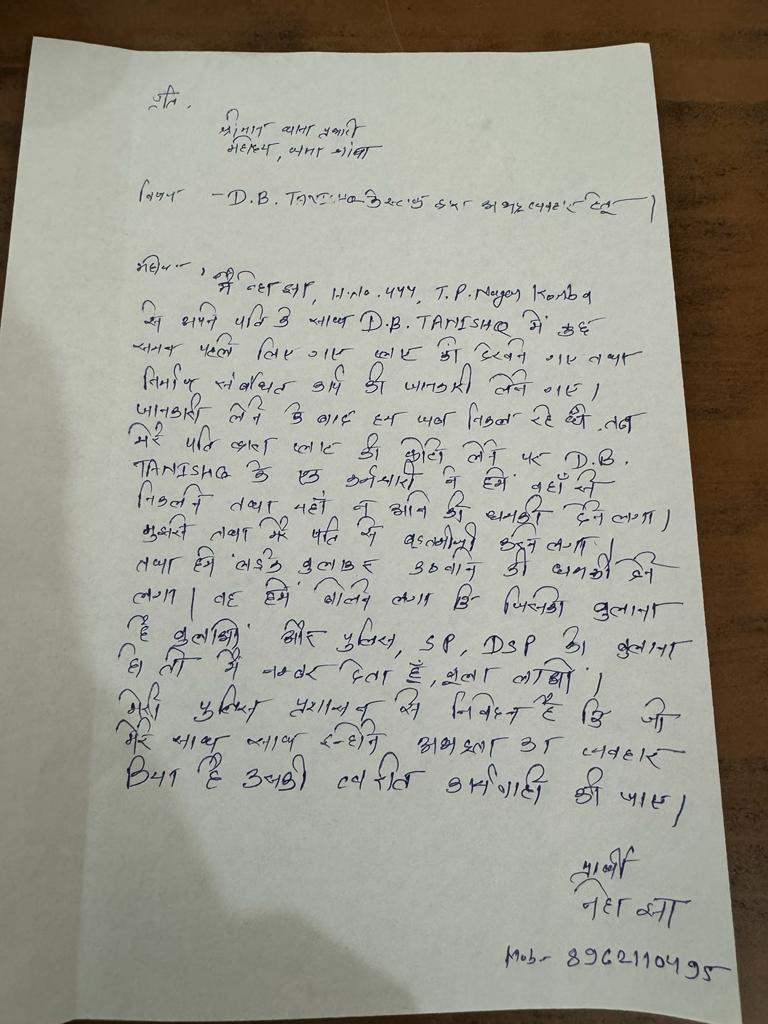 प्रति,
श्रीमान थाना प्रभारी
महोदय, थाना
विषय - D.B. TANISHQ के स्टाफ द्वारा अभद्र व्यवहार हेतु।
महोदय,
मैं नेहा झा, H.No. 444, T.P. Nagar Korba
से अपने पति के साथ D.B. TANISHQ में कुछ
समय पहले लिए गए प्लाट को देखने गए तथा
निर्माण संबंधित कार्य की जानकारी लेने गए।
जानकारी लेने के बाद हम जब निकल रहे थे तब
मेरे पति द्वारा प्लाट की फोटो लेने पर D.B.
TANISHQ के एक कर्मचारी ने हमें वहाँ से
निकलने तथा वहाँ न आने की धमकी देने लगा।
मुझसे तथा मेरे पति से बदतमीजी करने लगा।
तथा हमें लड़के बुलाकर उठवाने की धमकी देने
लगा। वह हमें बोलने लगा कि जिसको बुलाना
है बुलाओ और पुलिस, SP, DSP को बुलाना
हो तो मैं नम्बर देता हूँ, बुला लाओ।
मेरी पुलिस प्रशासन से निवेदन है कि जो
मेरे साथ साथ इन्होंने अभद्रता का व्यवहार
किया है उसकी त्वरीत कार्यवाही की जाए।
प्रार्थी
नेहा झा
Mob - 8962110495